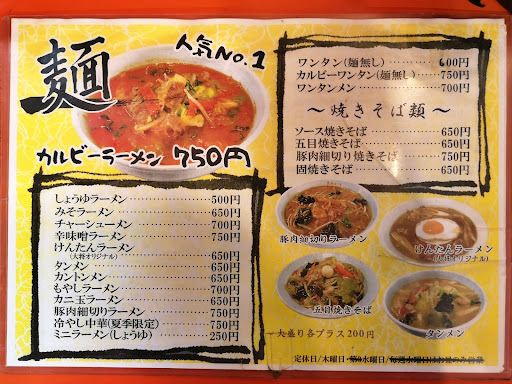 麺
人気No.1
カルビーラーメン 750円
しょうゆラーメン 500円
みそラーメン 650円
チャーシューメン 700円
辛味噌ラーメン 750円
けんたんラーメン
(大将オリジナル) 650円
タンメン 650円
カントンメン 650円
もやしラーメン 700円
カニ玉ラーメン 650円
豚肉細切りラーメン 750円
冷やし中華(夏季限定) 750円
ミニラーメン(しょうゆ) 250円
ワンタン(麺無し) 600円
カルビーワンタン(麺無し) 750円
ワンタンメン 700円
～焼きそば類～
ソース焼きそば 650円
五目焼きそば 650円
豚肉細切り焼きそば 750円
固焼きそば 650円
豚肉細切りラーメン
けんたんラーメン
(大将オリジナル)
五目焼きそば
タンメン
大盛り各プラス200円
定休日/木曜日